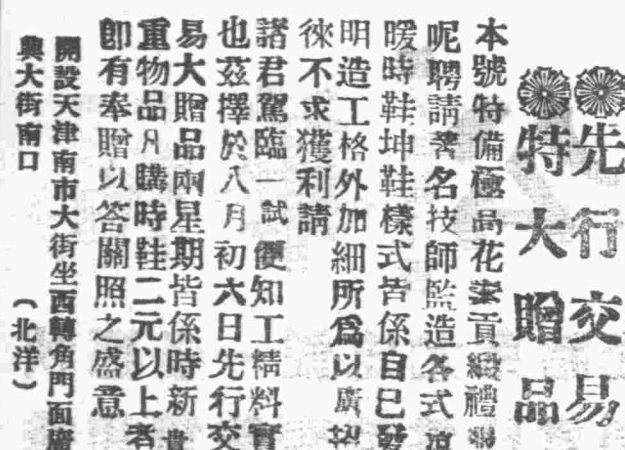 先行交易
特大贈品
本號特備極高花素貢緞禮
呢聘請著名技師監造各式
暖時鞋坤鞋樣式皆係自己發
明造工格外加細所爲以廣招
徠不求獲利請
諸君駕臨一試便知工精料實
也茲擇於八月初六日先行交
易大贈品兩星期皆係時新貴
重物品凡購時鞋二元以上者
卽有奉贈以答關照之盛意
開設天津南市大街坐西轉角門面廣
興大街南口
（北洋）